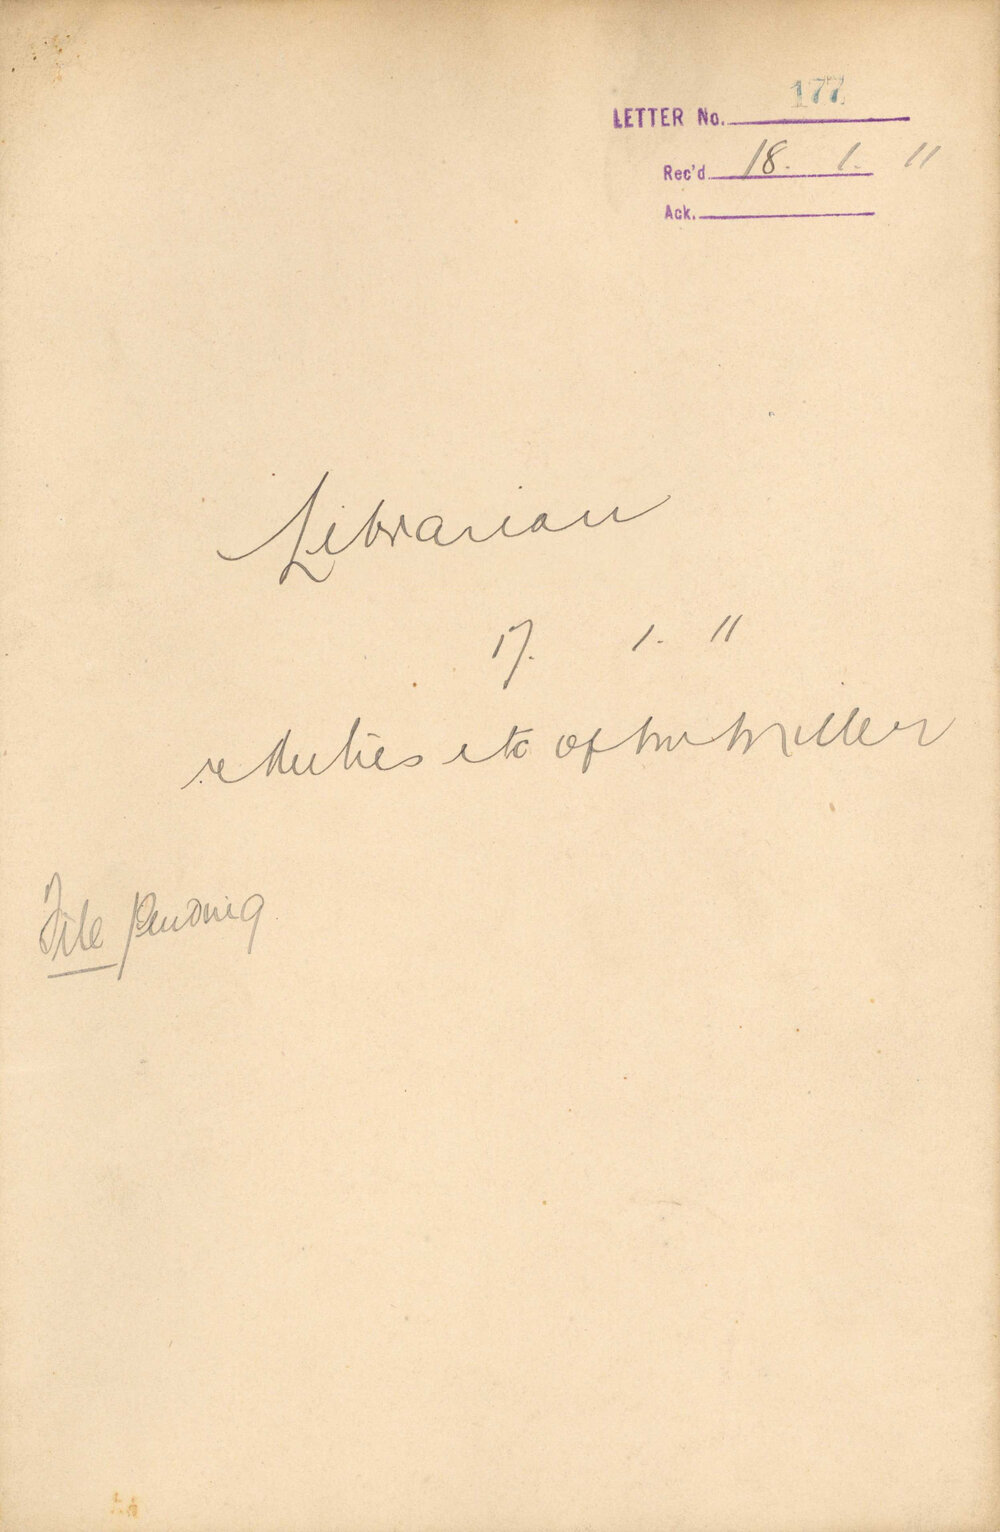 LETTER No. 177
Rec'd 18. 1. 11
Ack.
Librarian
17. 1. 11
re duties etc of Mr Miller
File pending